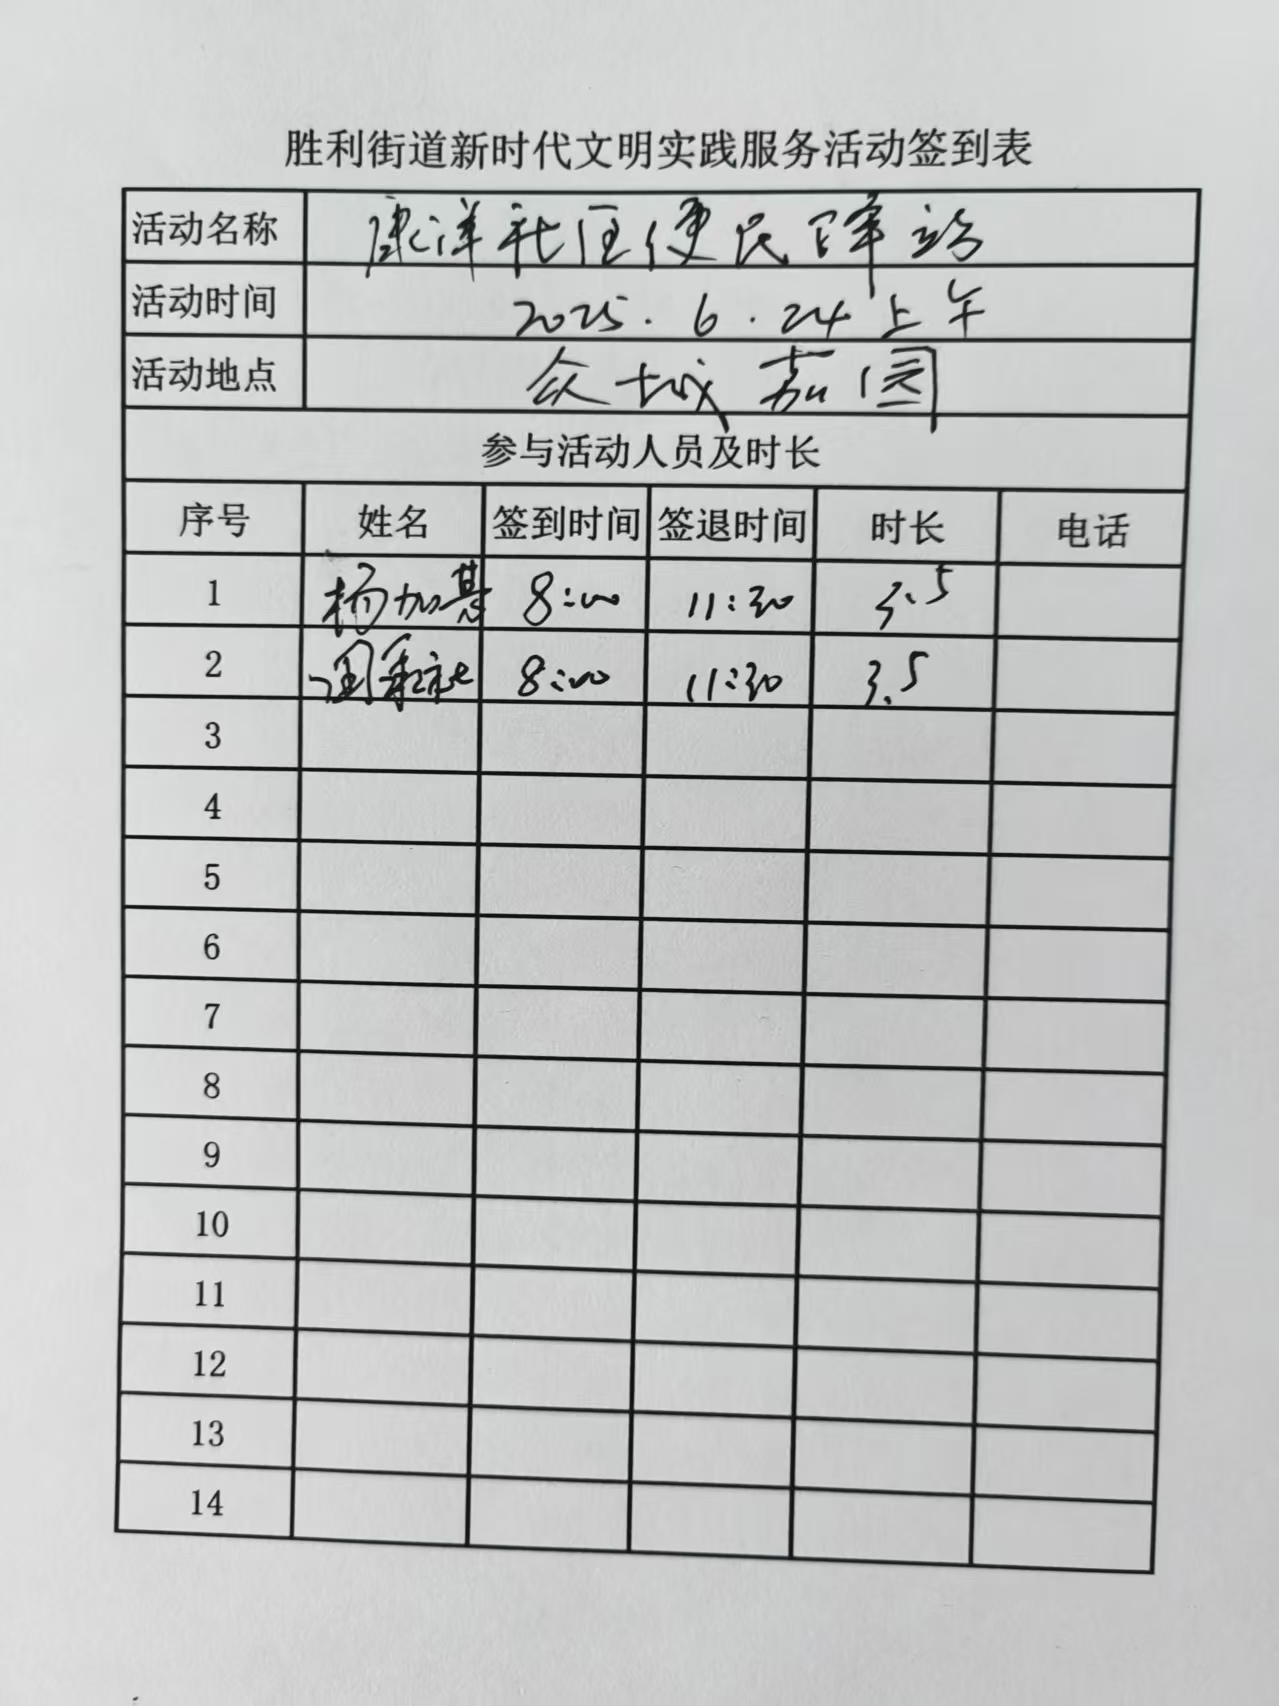 胜利街道新时代文明实践服务活动签到表
活动名称 康洋社区便民驿站
活动时间 2025.6.24上午
活动地点 众城嘉园
参与活动人员及时长
序号 姓名 签到时间 签退时间 时长 电话
1 杨加基 8:00 11:30 3.5
2 8:00 11:30 3.5
3
4
5
6
7
8
9
10
11
12
13
14